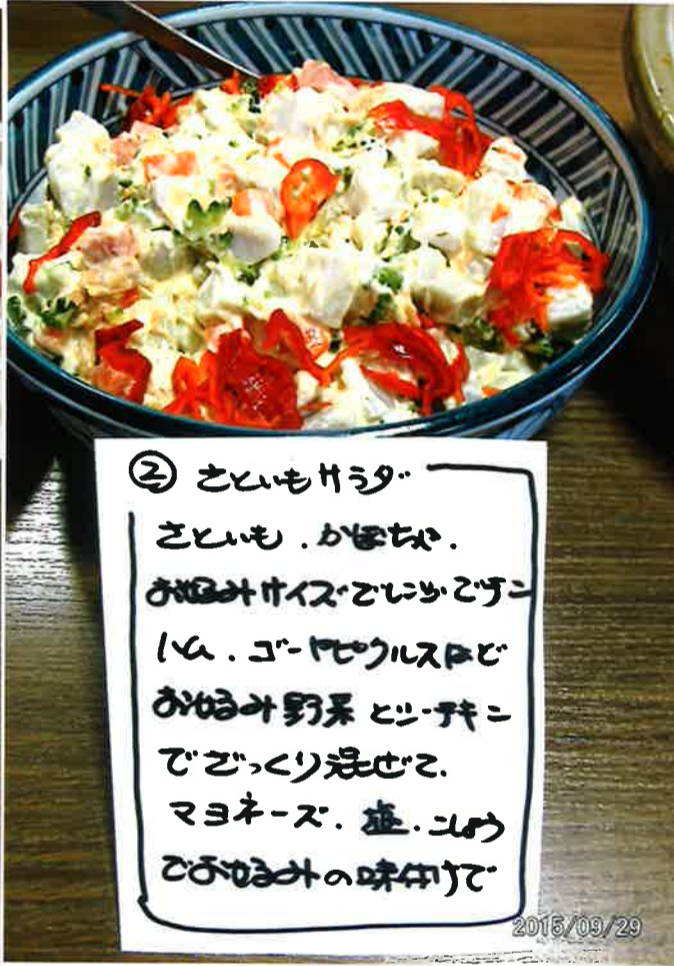 ② さといもサラダ
さといも.かぼちゃ.
お好みサイズでレンジでチン
ハム.ゴーヤピクルスなど
お好み野菜とシーチキン
でざっくり混ぜて.
マヨネーズ.塩.こしょう
でお好みの味付けで
2015/09/29